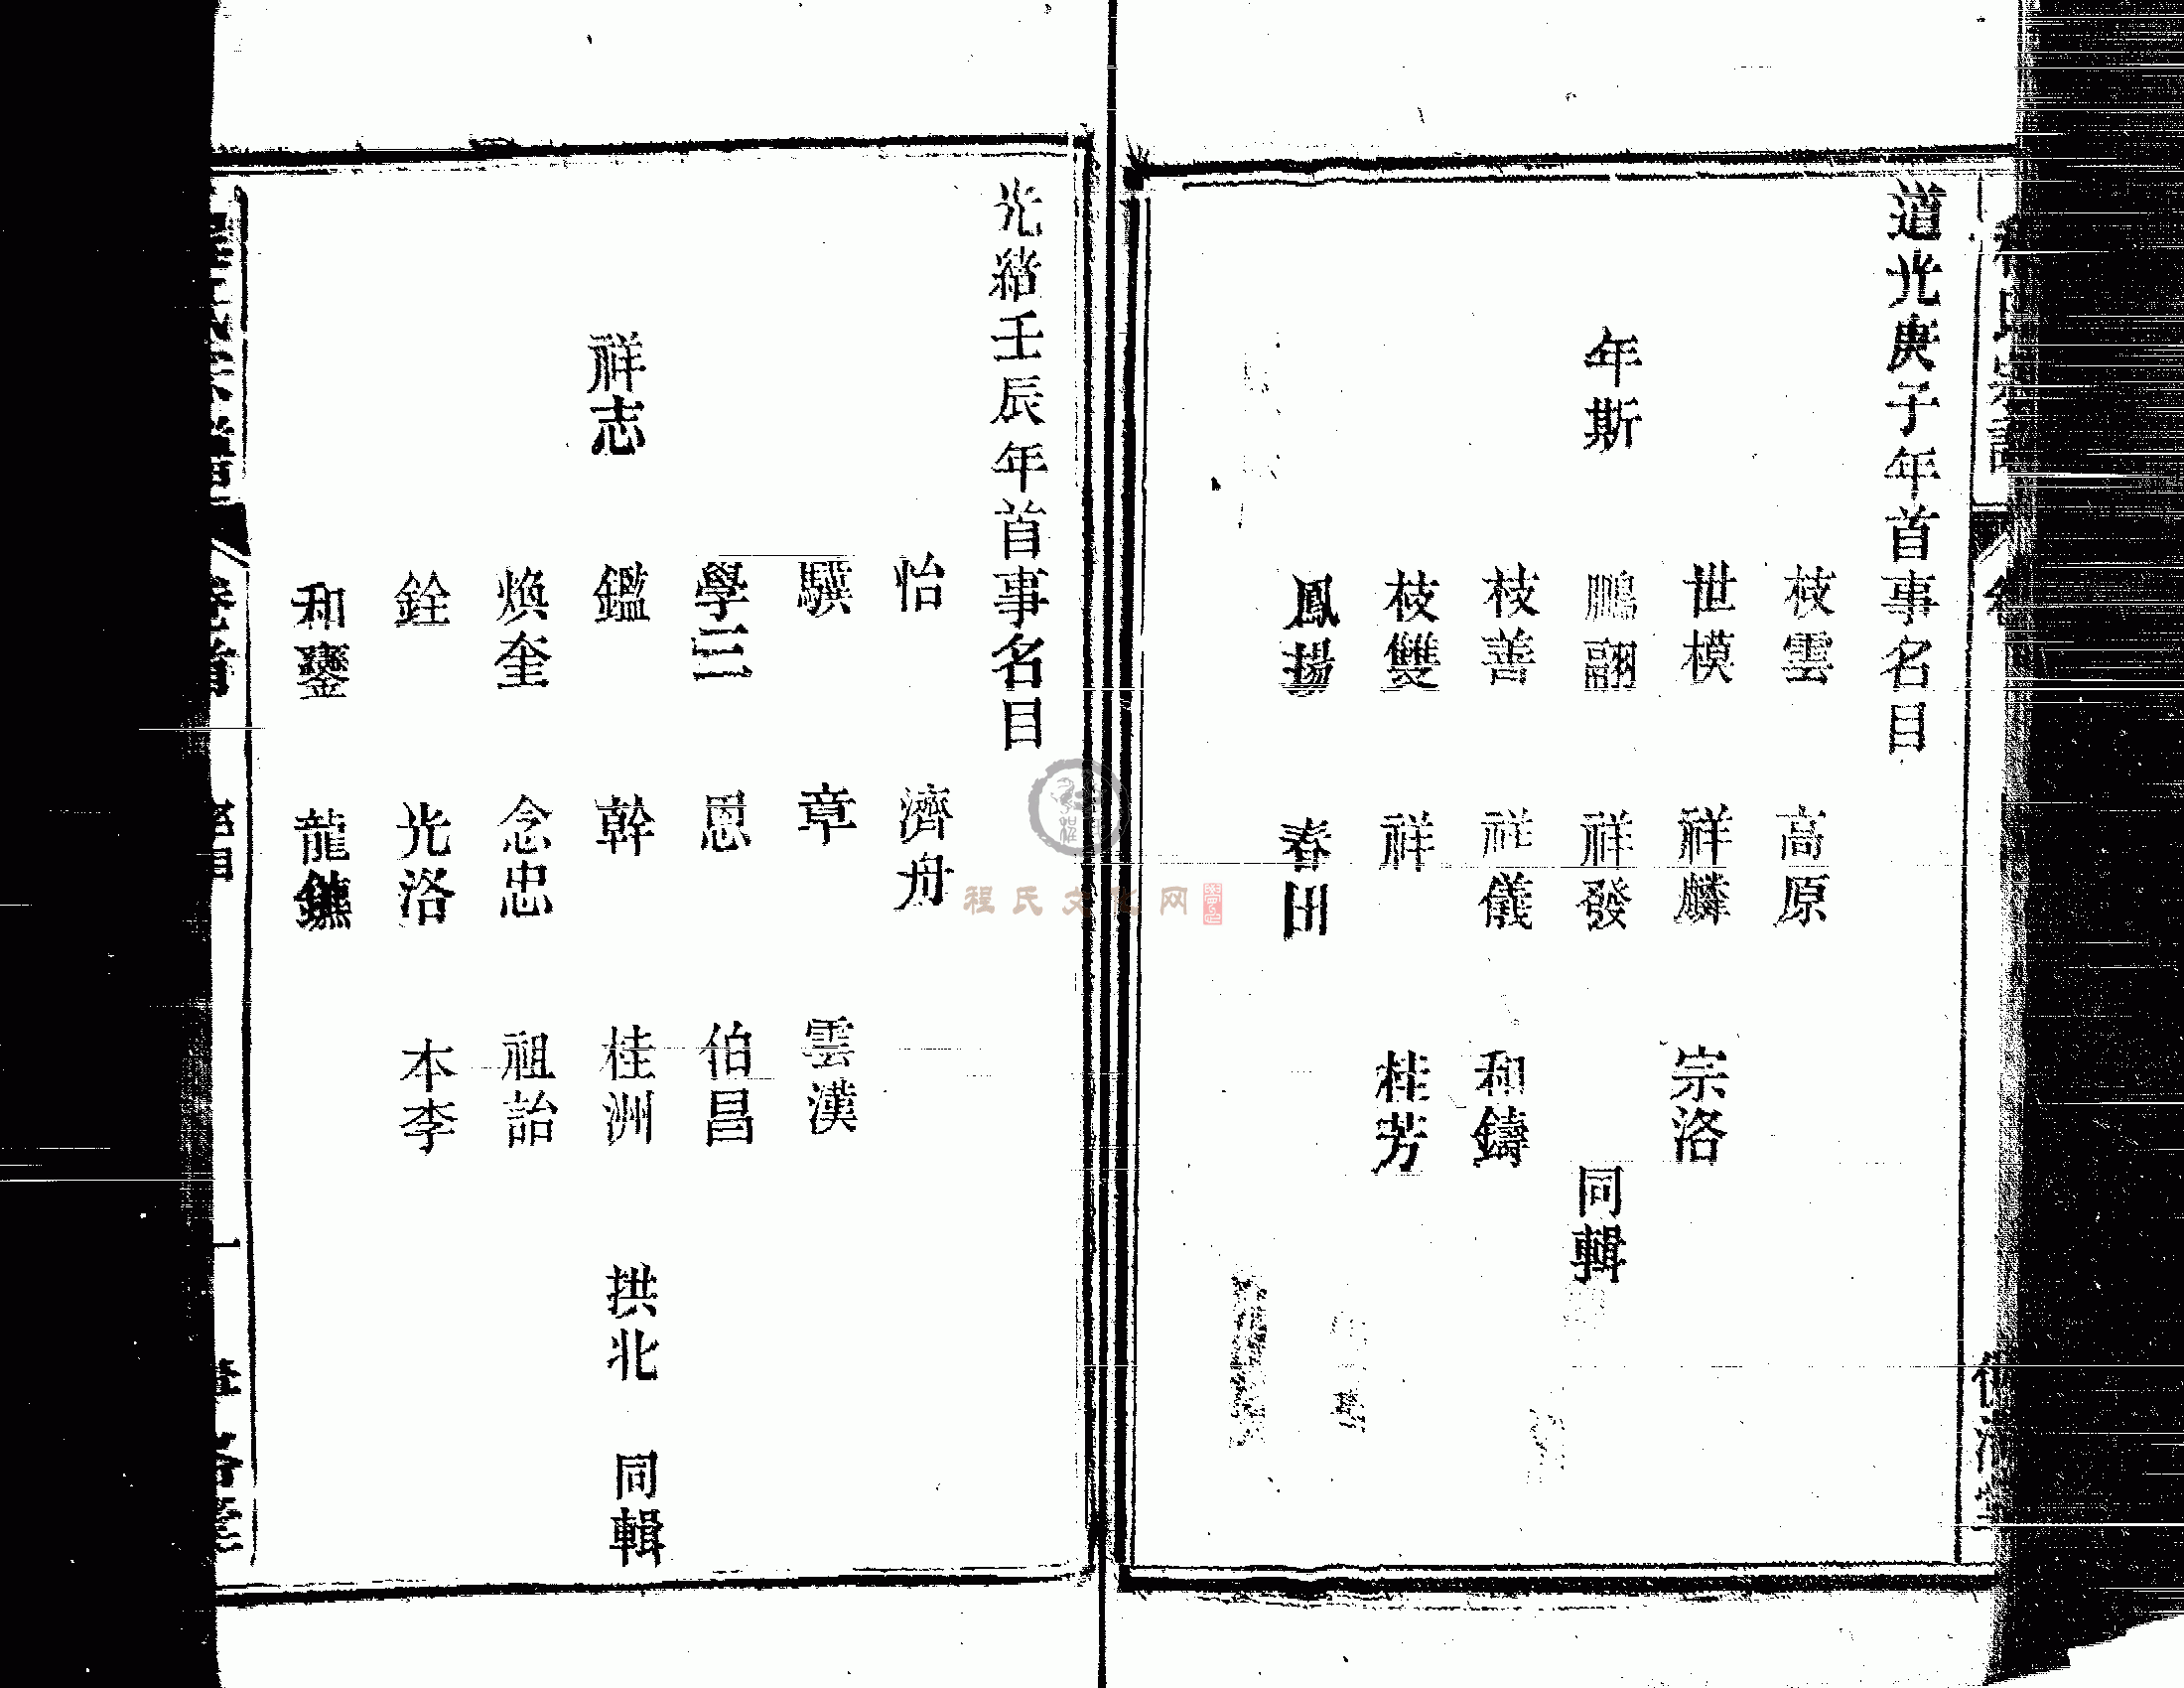 道光庚子年首事名目
枝雲 高原
世模 祥麟 宗洛
年斯 鵬翮 祥發 同輯
枝善 祥儀 和鑄
枝雙 祥 桂芳
鳳揚 春田
光緒壬辰年首事名目
怡 濟舟
驥 章 雲漢
學三 恩 伯昌
祥志 鑑 幹 桂洲 拱北 同輯
煥奎 念忠 祖詒
銓 光洛 本李
和鑾 龍鑣
卷首
程氏文化网